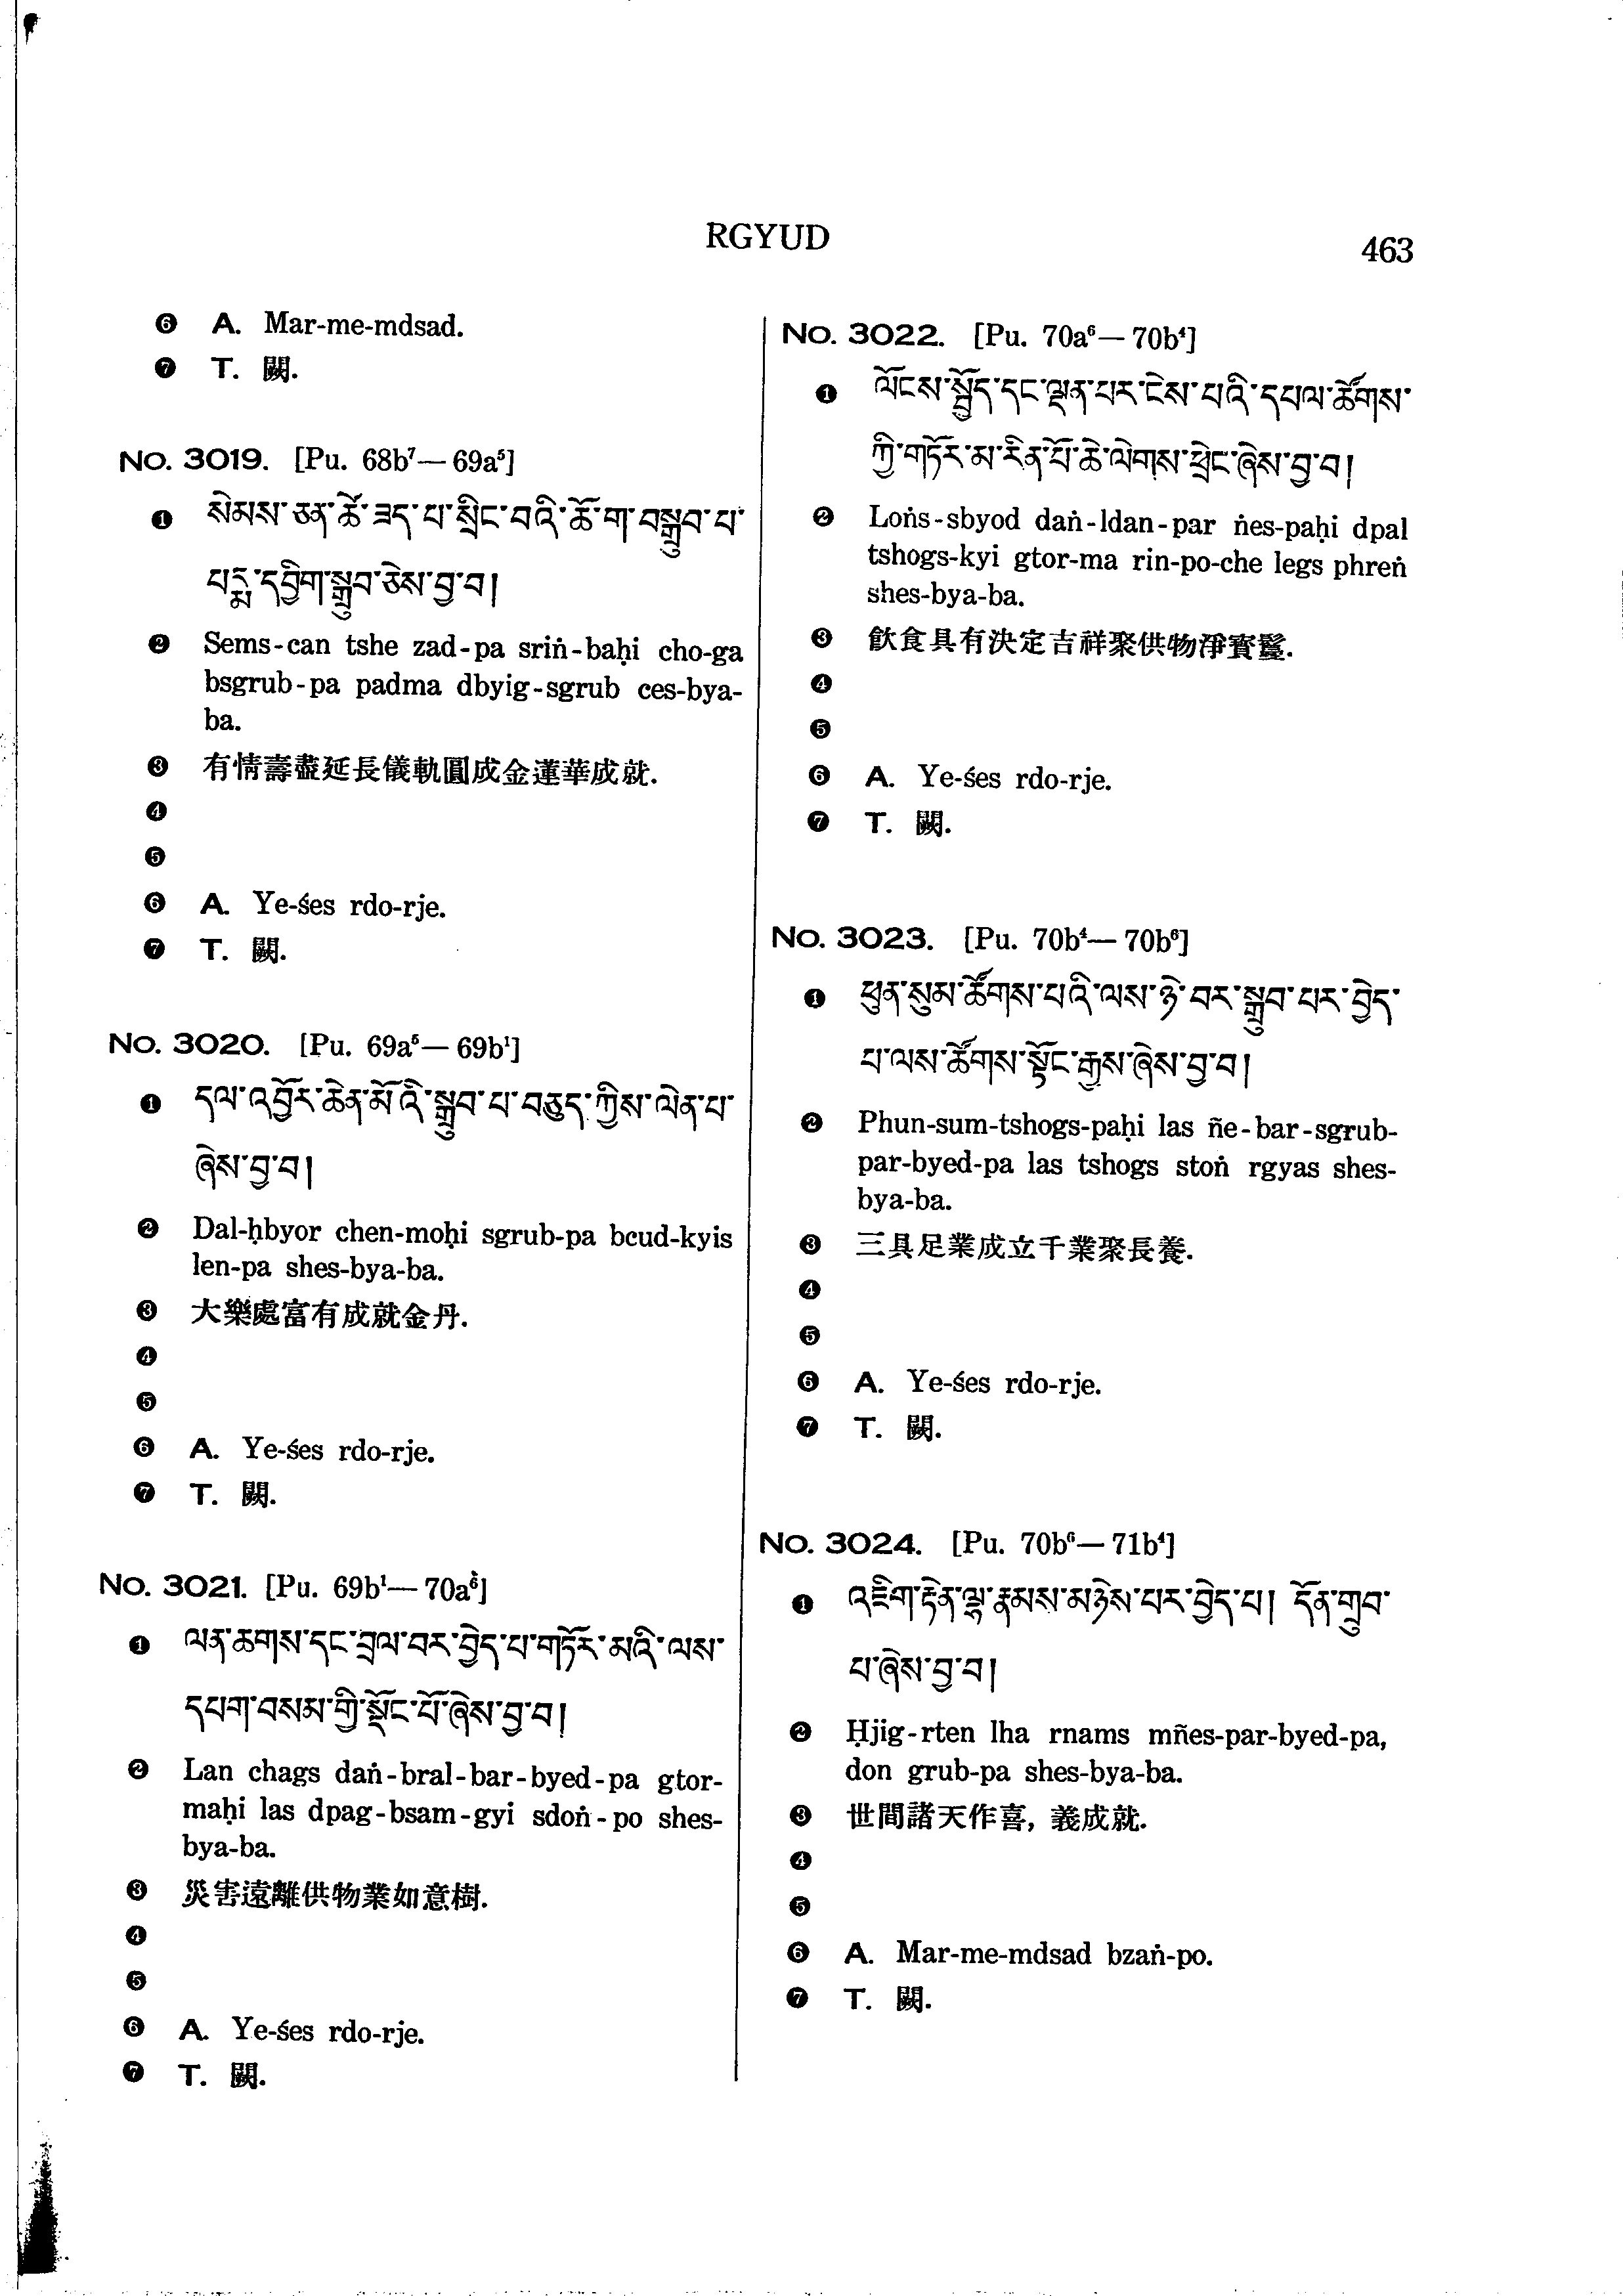 RGYUD
463
❻ A. Mar-me-mdsad.
❼ T. 闕.
No. 3019. [Pu. 68b⁷— 69a⁵]
❶ སེམས་ཅན་ཚེ་ཟད་པ་སྲིང་བའི་ཆོ་ག་བསྒྲུབ་པ་
པདྨ་དབྱིག་སྒྲུབ་ཅེས་བྱ་བ།
❷ Sems-can tshe zad-pa sriṅ-baḥi cho-ga
bsgrub-pa padma dbyig-sgrub ces-bya-
ba.
❸ 有情壽盡延長儀軌圓成金蓮華成就.
❹
❺
❻ A. Ye-śes rdo-rje.
❼ T. 闕.
No. 3020. [Pu. 69a⁵— 69b¹]
❶ དལ་འབྱོར་ཆེན་མོའི་སྒྲུབ་པ་བཅུད་ཀྱིས་ལེན་པ་
ཞེས་བྱ་བ།
❷ Dal-ḥbyor chen-moḥi sgrub-pa bcud-kyis
len-pa shes-bya-ba.
❸ 大樂處富有成就金丹.
❹
❺
❻ A. Ye-śes rdo-rje.
❼ T. 闕.
No. 3021. [Pu. 69b¹— 70a⁶]
❶ ལན་ཆགས་དང་བྲལ་བར་བྱེད་པ་གཏོར་མའི་ལས་
དཔག་བསམ་གྱི་སྡོང་པོ་ཞེས་བྱ་བ།
❷ Lan chags daṅ-bral-bar-byed-pa gtor-
maḥi las dpag-bsam-gyi sdoṅ-po shes-
bya-ba.
❸ 災害遠離供物業如意樹.
❹
❺
❻ A. Ye-śes rdo-rje.
❼ T. 闕.
No. 3022. [Pu. 70a⁶— 70b⁴]
❶ ལོངས་སྤྱོད་དང་ལྡན་པར་ངེས་པའི་དཔལ་ཚོགས་
ཀྱི་གཏོར་མ་རིན་པོ་ཆེ་ལེགས་ཕྲེང་ཞེས་བྱ་བ།
❷ Loṅs-sbyod daṅ-ldan-par ṅes-paḥi dpal
tshogs-kyi gtor-ma rin-po-che legs phreṅ
shes-bya-ba.
❸ 飮食具有決定吉祥聚供物淨寶鬘.
❹
❺
❻ A. Ye-śes rdo-rje.
❼ T. 闕.
No. 3023. [Pu. 70b⁴— 70b⁶]
❶ ཕུན་སུམ་ཚོགས་པའི་ལས་ཉེ་བར་སྒྲུབ་པར་བྱེད་
པ་ལས་ཚོགས་སྟོང་རྒྱས་ཞེས་བྱ་བ།
❷ Phun-sum-tshogs-paḥi las ñe-bar-sgrub-
par-byed-pa las tshogs stoṅ rgyas shes-
bya-ba.
❸ 三具足業成立千業聚長養.
❹
❺
❻ A. Ye-śes rdo-rje.
❼ T. 闕.
No. 3024. [Pu. 70b⁶— 71b⁴]
❶ འཇིག་རྟེན་ལྷ་རྣམས་མཉེས་པར་བྱེད་པ། དོན་གྲུབ་
པ་ཞེས་བྱ་བ།
❷ Ḥjig-rten lha rnams mñes-par-byed-pa,
don grub-pa shes-bya-ba.
❸ 世間諸天作喜, 義成就.
❹
❺
❻ A. Mar-me-mdsad bzaṅ-po.
❼ T. 闕.